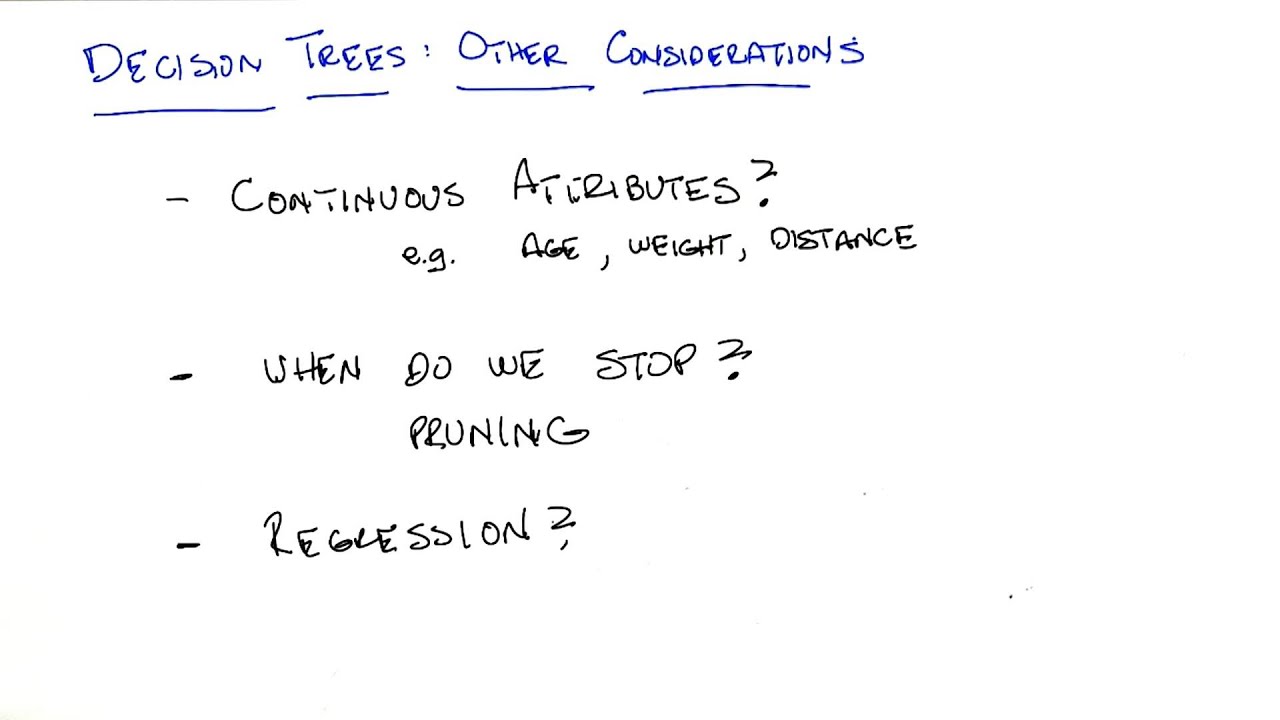 DECISION TREES: OTHER CONSIDERATIONS
- CONTINUOUS ATTRIBUTES?
e.g. AGE, WEIGHT, DISTANCE
- WHEN DO WE STOP?
PRUNING
- REGRESSION?